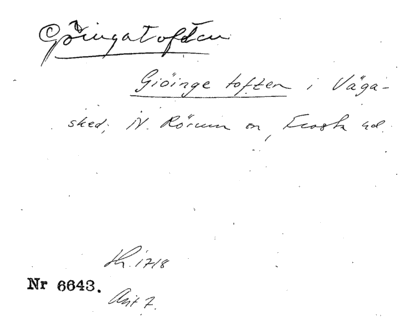 Göingatoften
Giöinge toften i Väga-
sked; N. Rörum sn, Frosta hd.
Lh. 1718
Nr 6643.
Avt 7.